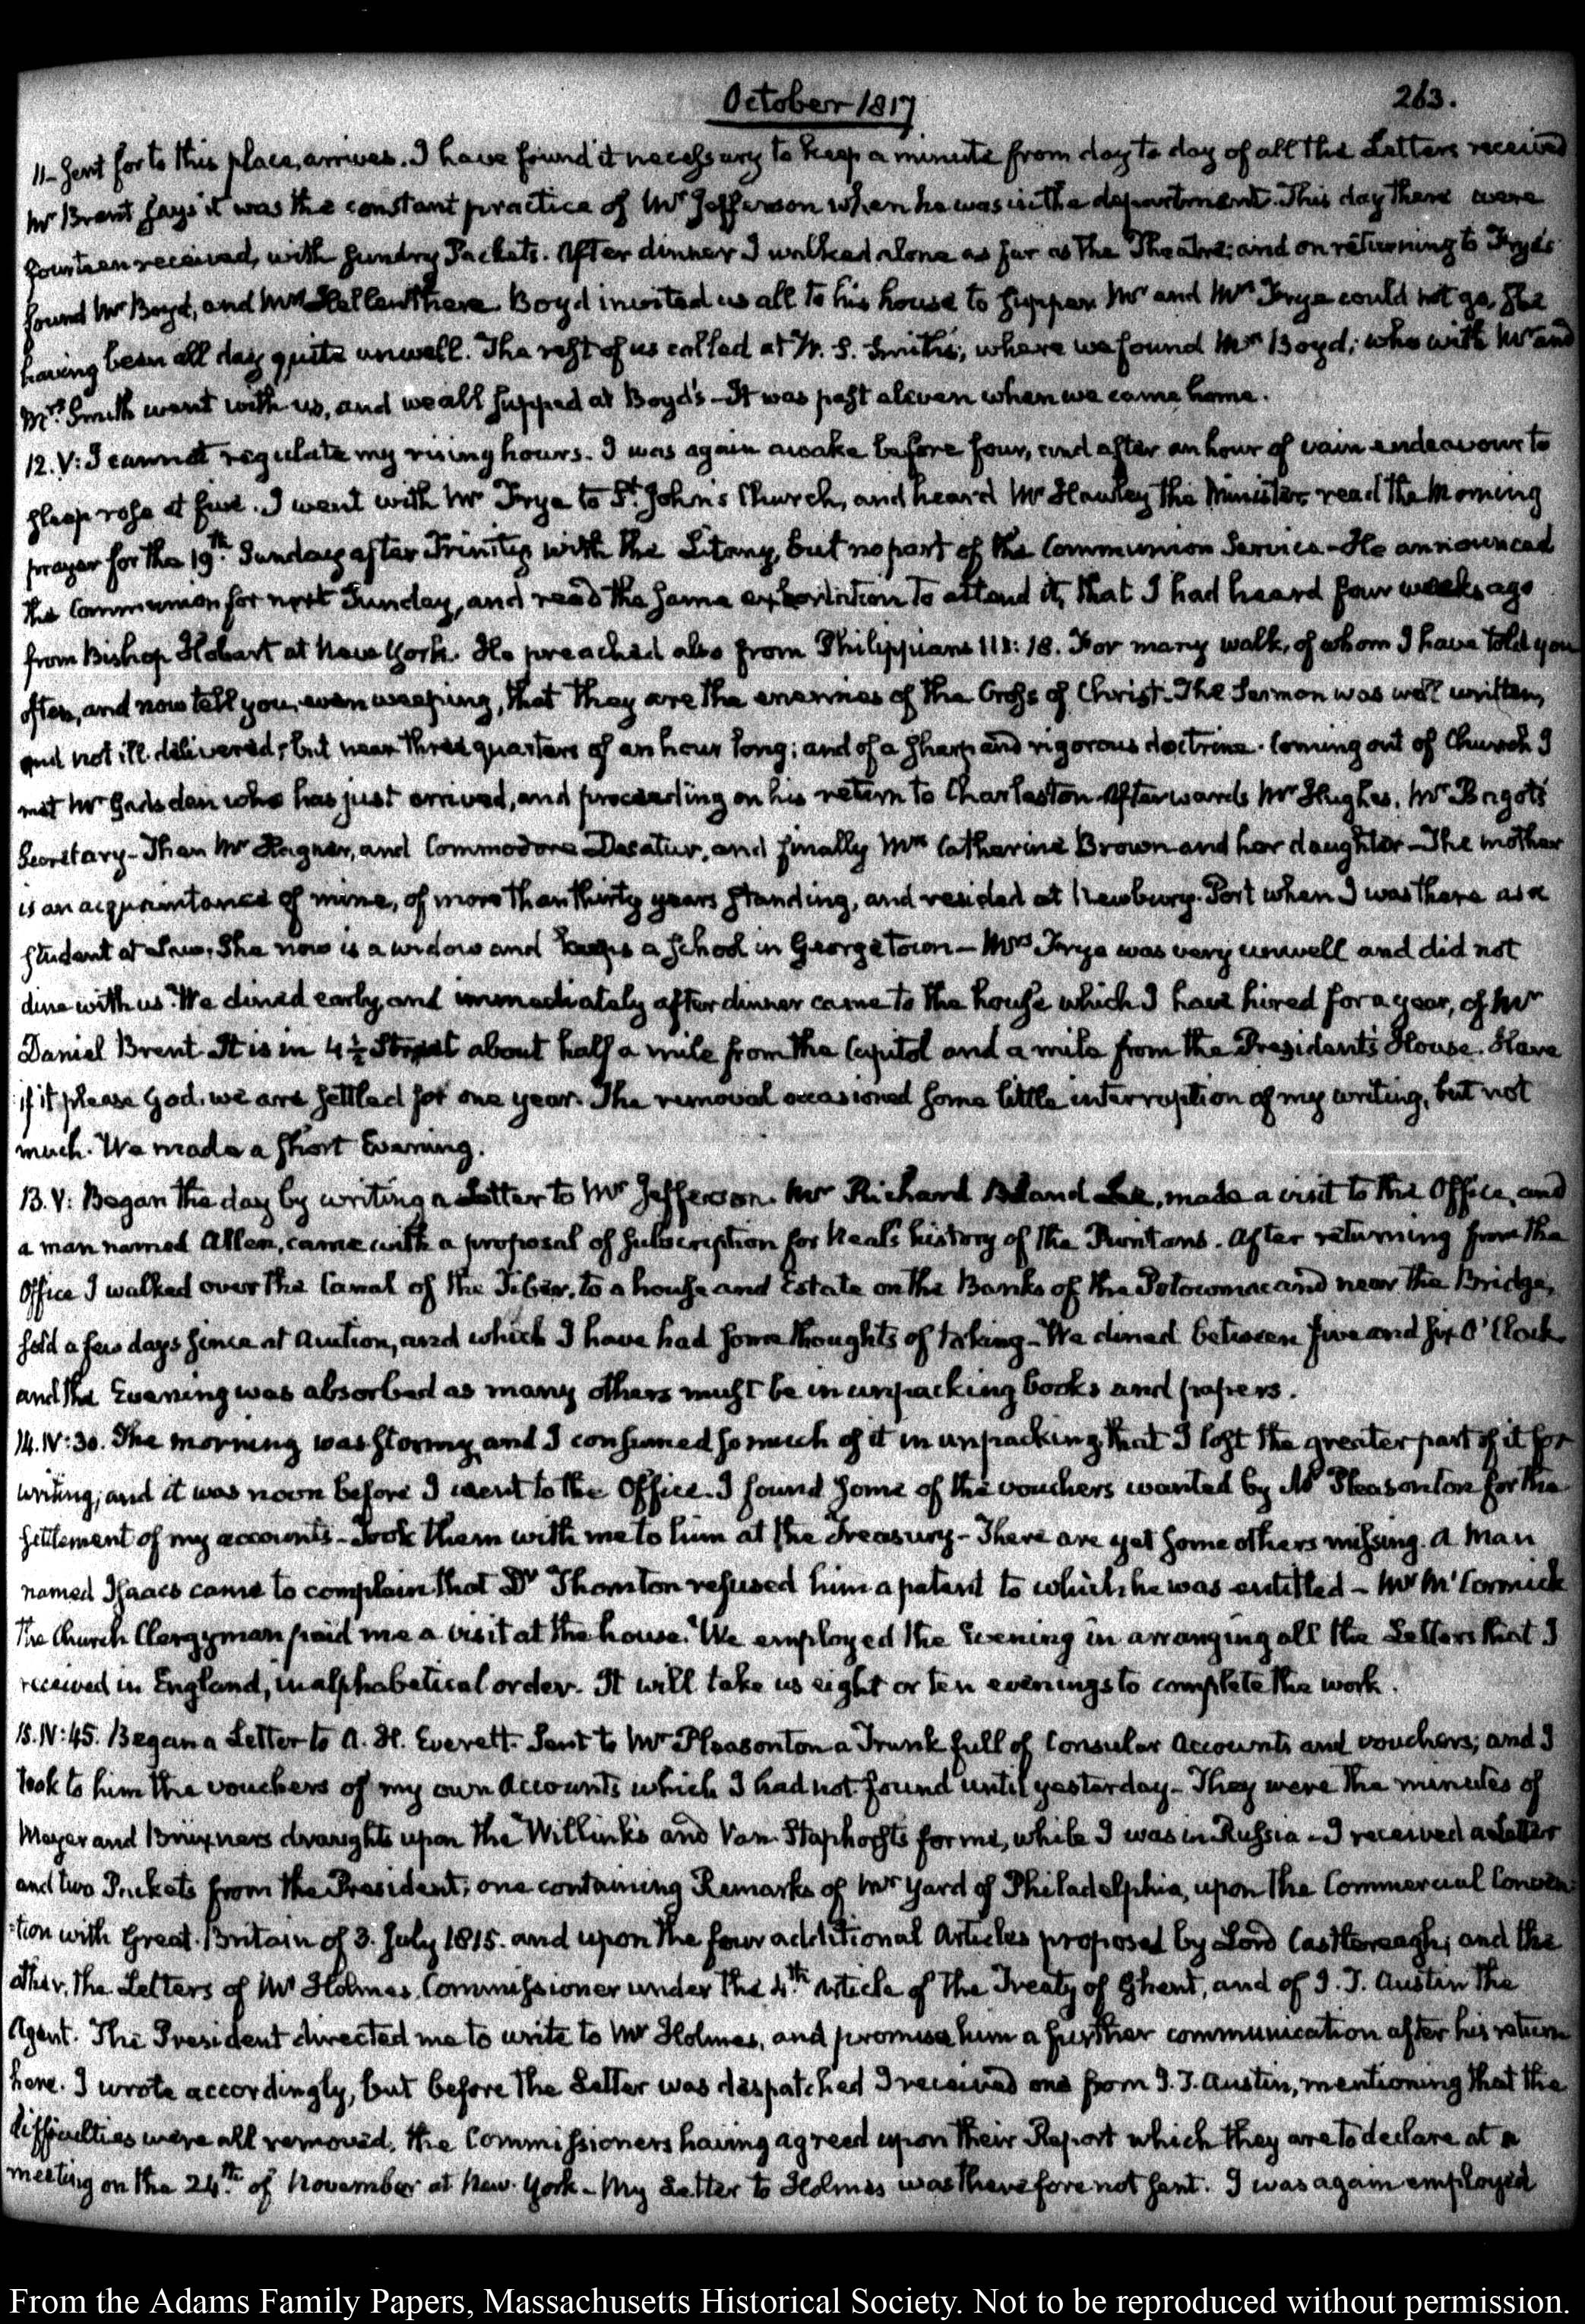 October 1817
263.
11- sent for to this place, arrives. I have found it necessary to keep a minute from day to day of all the Letters received
Mr Brent says it was the constant practice of Mr Jefferson when he was in the department. This day there were
fourteen received, with sundry Packets. After dinner I walked alone as far as the Theatre; and on returning to Frye's
found Mr Boyd, and Mrs Hellen there. Boyd invited us all to his house to supper. Mr and Mrs Frye could not go, she
having been all day quite unwell. The rest of us called at W. S. Smith's, where we found Mrs Boyd; who with Mr and
Mrs Smith went with us, and we all supped at Boyd's - It was past eleven when we came home.
12. V: I cannot regulate my rising hours. I was again awake before four, and after an hour of vain endeavour to
sleep rose at five. I went with Mr Frye to St. John's Church, and heard Mr Hawley the Minister read the Morning
prayer for the 19th Sunday after Trinity with the Litany, but no part of the Communion Service - He announced
the Communion for next Sunday, and read the same exhortation to attend it, that I had heard four weeks ago
from Bishop Hobart at New York. He preached also from Philippians III: 18. For many walk, of whom I have told you
often, and now tell you, even weeping, that they are the enemies of the Cross of Christ. The Sermon was well written,
and not ill delivered; but near three quarters of an hour long; and of a sharp and rigorous doctrine. Coming out of Church I
met Mr Gadsden who has just arrived, and proceeding on his return to Charleston. Afterwards Mr Hughes, Mr Bagot's
Secretary - Then Mr Hagner, and Commodore Decatur, and finally Mrs Catherine Brown and her daughter - The mother
is an acquaintance of mine, of more than thirty years standing, and resided at Newbury-Port when I was there as a
student at Law. She now is a widow and keeps a school in Georgetown - Mrs Frye was very unwell and did not
dine with us. We dined early, and immediately after dinner came to the house which I have hired for a year, of Mr
Daniel Brent. It is in 4½ Street about half a mile from the Capitol and a mile from the President's House. Here
if it please God, we are settled for one year. The removal occasioned some little interruption of my writing, but not
much. We made a short Evening.
13. V: Began the day by writing a Letter to Mr Jefferson. Mr Richard Bland Lee, made a visit to the Office, and
a man named Allen, came with a proposal of subscription for Neal's history of the Puritans. After returning from the
Office I walked over the Canal of the Tiber, to a house and Estate on the Banks of the Potowmac and near the Bridge,
sold a few days since at Auction, and which I have had some thoughts of taking - We dined between five and six O'Clock
and the Evening was absorbed as many others must be in unpacking books and papers.
14. IV:30. The morning was stormy, and I consumed so much of it in unpacking, that I lost the greater part of it for
writing; and it was noon before I went to the Office. I found some of the vouchers wanted by Mr Pleasonton for the
settlement of my accounts - Took them with me to him at the Treasury - There are yet some others missing. A Man
named Isaacs came to complain that Dr Thornton refused him a patent to which he was entitled - Mr McCormick
the Church Clergyman paid me a visit at the house. We employed the Evening in arranging all the Letters that I
received in England, in alphabetical order. It will take us eight or ten evenings to complete the work.
15. IV:45. Began a Letter to A. H. Everett. Sent to Mr Pleasonton a Trunk full of Consular Accounts and vouchers; and I
took to him the vouchers of my own Accounts which I had not found until yesterday - They were the minutes of
Meyer and Bruxners draughts upon the Willinks and Van Staphorsts for me, while I was in Russia - I received a Letter
and two Packets from the President; one containing Remarks of Mr Yard of Philadelphia, upon the Commercial Conven-
tion with Great-Britain of 3. July 1815. and upon the four additional Articles proposed by Lord Castlereagh; and the
other, the Letters of Mr Holmes, Commissioner under the 4th Article of the Treaty of Ghent, and of J. T. Austin the
Agent. The President directed me to write to Mr Holmes, and promise him a further communication after his return
here. I wrote accordingly, but before the Letter was despatched I received one from J. T. Austin, mentioning that the
difficulties were all removed, the Commissioners having agreed upon their Report which they are to declare at a
meeting on the 24th of November at New-York - My Letter to Holmes was therefore not sent. I was again employed
From the Adams Family Papers, Massachusetts Historical Society. Not to be reproduced without permission.